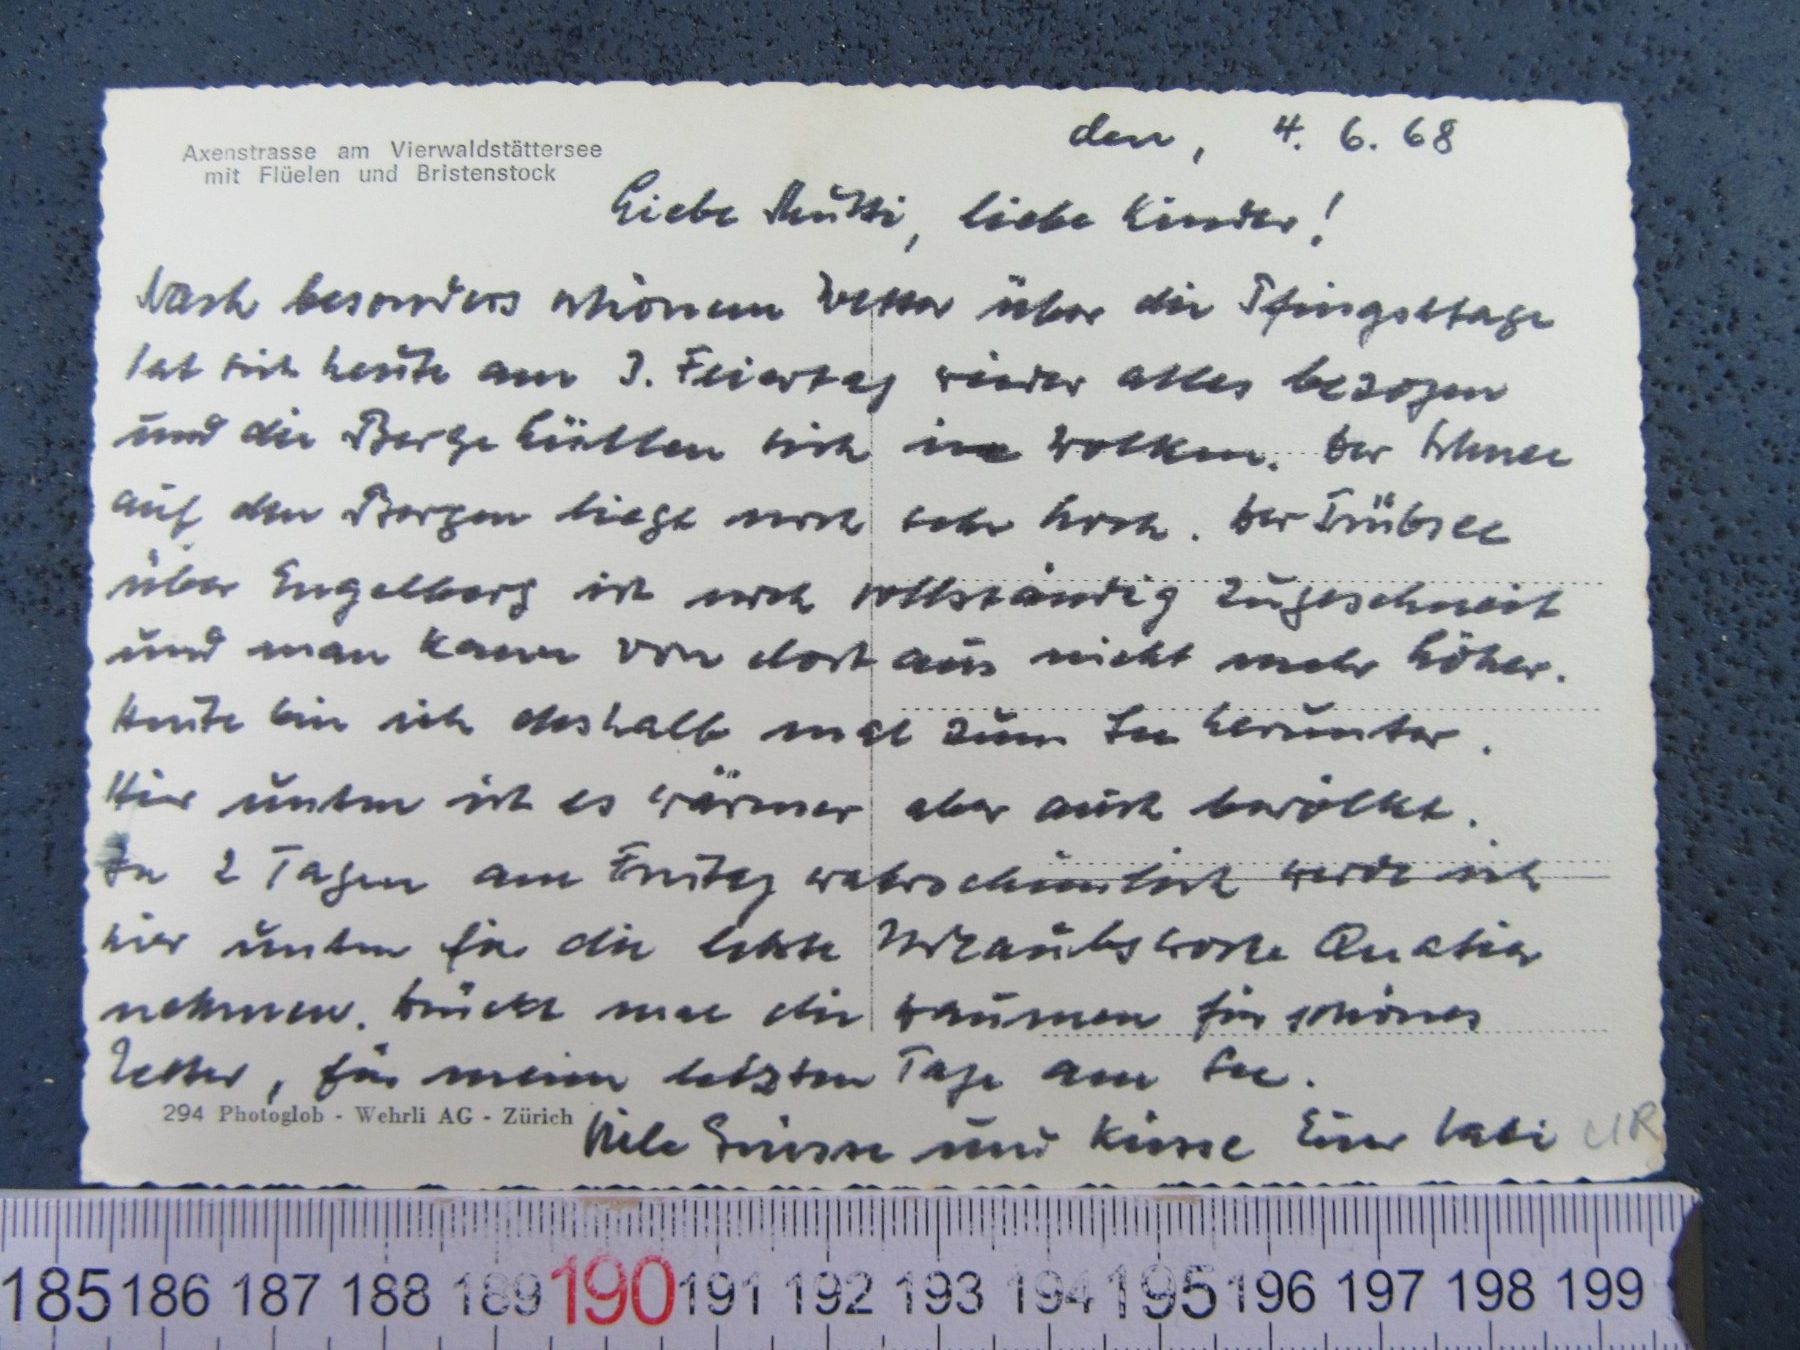 Axenstrasse am Vierwaldstättersee
mit Flüelen und Bristenstock
den, 4. 6. 68
Liebe Mutti, liebe Kinder!
Nach besonders schönem Wetter über die Pfingsttage
hat sich heute am 3. Feiertag wieder alles bezogen
und die Berge hüllen sich in Wolken. Der Schnee
auf den Bergen liegt noch sehr hoch. Der Trübsee
über Engelberg ist noch vollständig zugeschneit
und man kann von dort aus nicht mehr höher.
Heute bin ich deshalb mal zum See herunter.
Hier unten ist es wärmer aber auch bewölkt.
In 2 Tagen am Freitag wahrscheinlich werde ich
hier unten für die letzte Urlaubswoche Quatier
nehmen. Drückt mal die Daumen für schönes
Wetter, für meine letzten Tage am See.
294 Photoglob - Wehrli AG - Zürich
Viele Grüsse und Küsse Euer Vati
UR
185 186 187 188 189 190 191 192 193 194 195 196 197 198 199